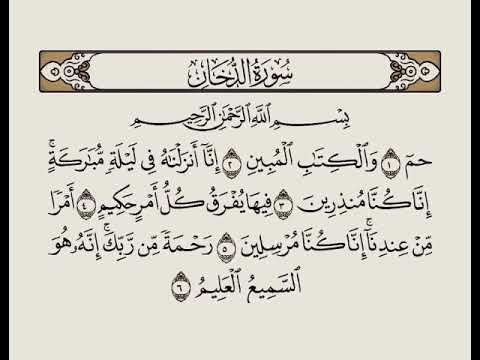 سُورَةُ الدُّخَانِ
بِسْمِ اللَّهِ الرَّحْمَٰنِ الرَّحِيمِ
حمٓ ١ وَالْكِتَابِ الْمُبِينِ ٢ إِنَّا أَنزَلْنَاهُ فِي لَيْلَةٍ مُّبَارَكَةٍ ۚ
إِنَّا كُنَّا مُنذِرِينَ ٣ فِيهَا يُفْرَقُ كُلُّ أَمْرٍ حَكِيمٍ ٤ أَمْرًا
مِّنْ عِندِنَا ۚ إِنَّا كُنَّا مُرْسِلِينَ ٥ رَحْمَةً مِّن رَّبِّكَ ۚ إِنَّهُ هُوَ
السَّمِيعُ الْعَلِيمُ ٦